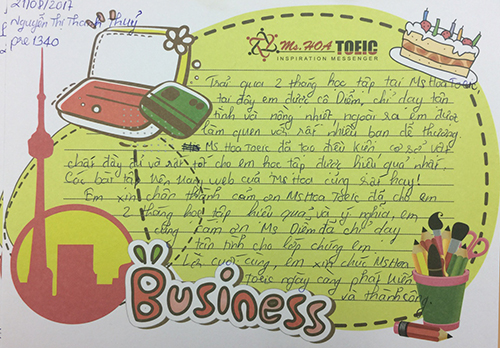 21/08/2017
Nguyễn Thị Thanh Thuỷ
pre 1340
Ms.HOA TOEIC
INSPIRATION MESSENGER
Trải qua 2 tháng học tập tại Ms Hoa Toeic,
tại đây em được cô Diễm, chỉ dạy tận
tình và năng nhiệt, ngoài ra em được
làm quen với rất nhiều bạn dễ thương.
Ms Hoa Toeic đã tạo điều kiện cơ sở vật
chất đầy đủ và rất tốt cho em học tập được hiệu quả nhất.
Các bài tập trên trang web của Ms Hoa cũng rất hay!
Em xin chân thành cảm ơn Ms Hoa Toeic đã cho em
2 tháng học tập hiệu quả và ý nghĩa, em
cũng cảm ơn Ms Diễm đã chỉ dạy
tận tình cho lớp chúng em
Lời cuối cùng, em xin chúc Ms Hoa
Toeic ngày càng phát triển
và thành công.
Business